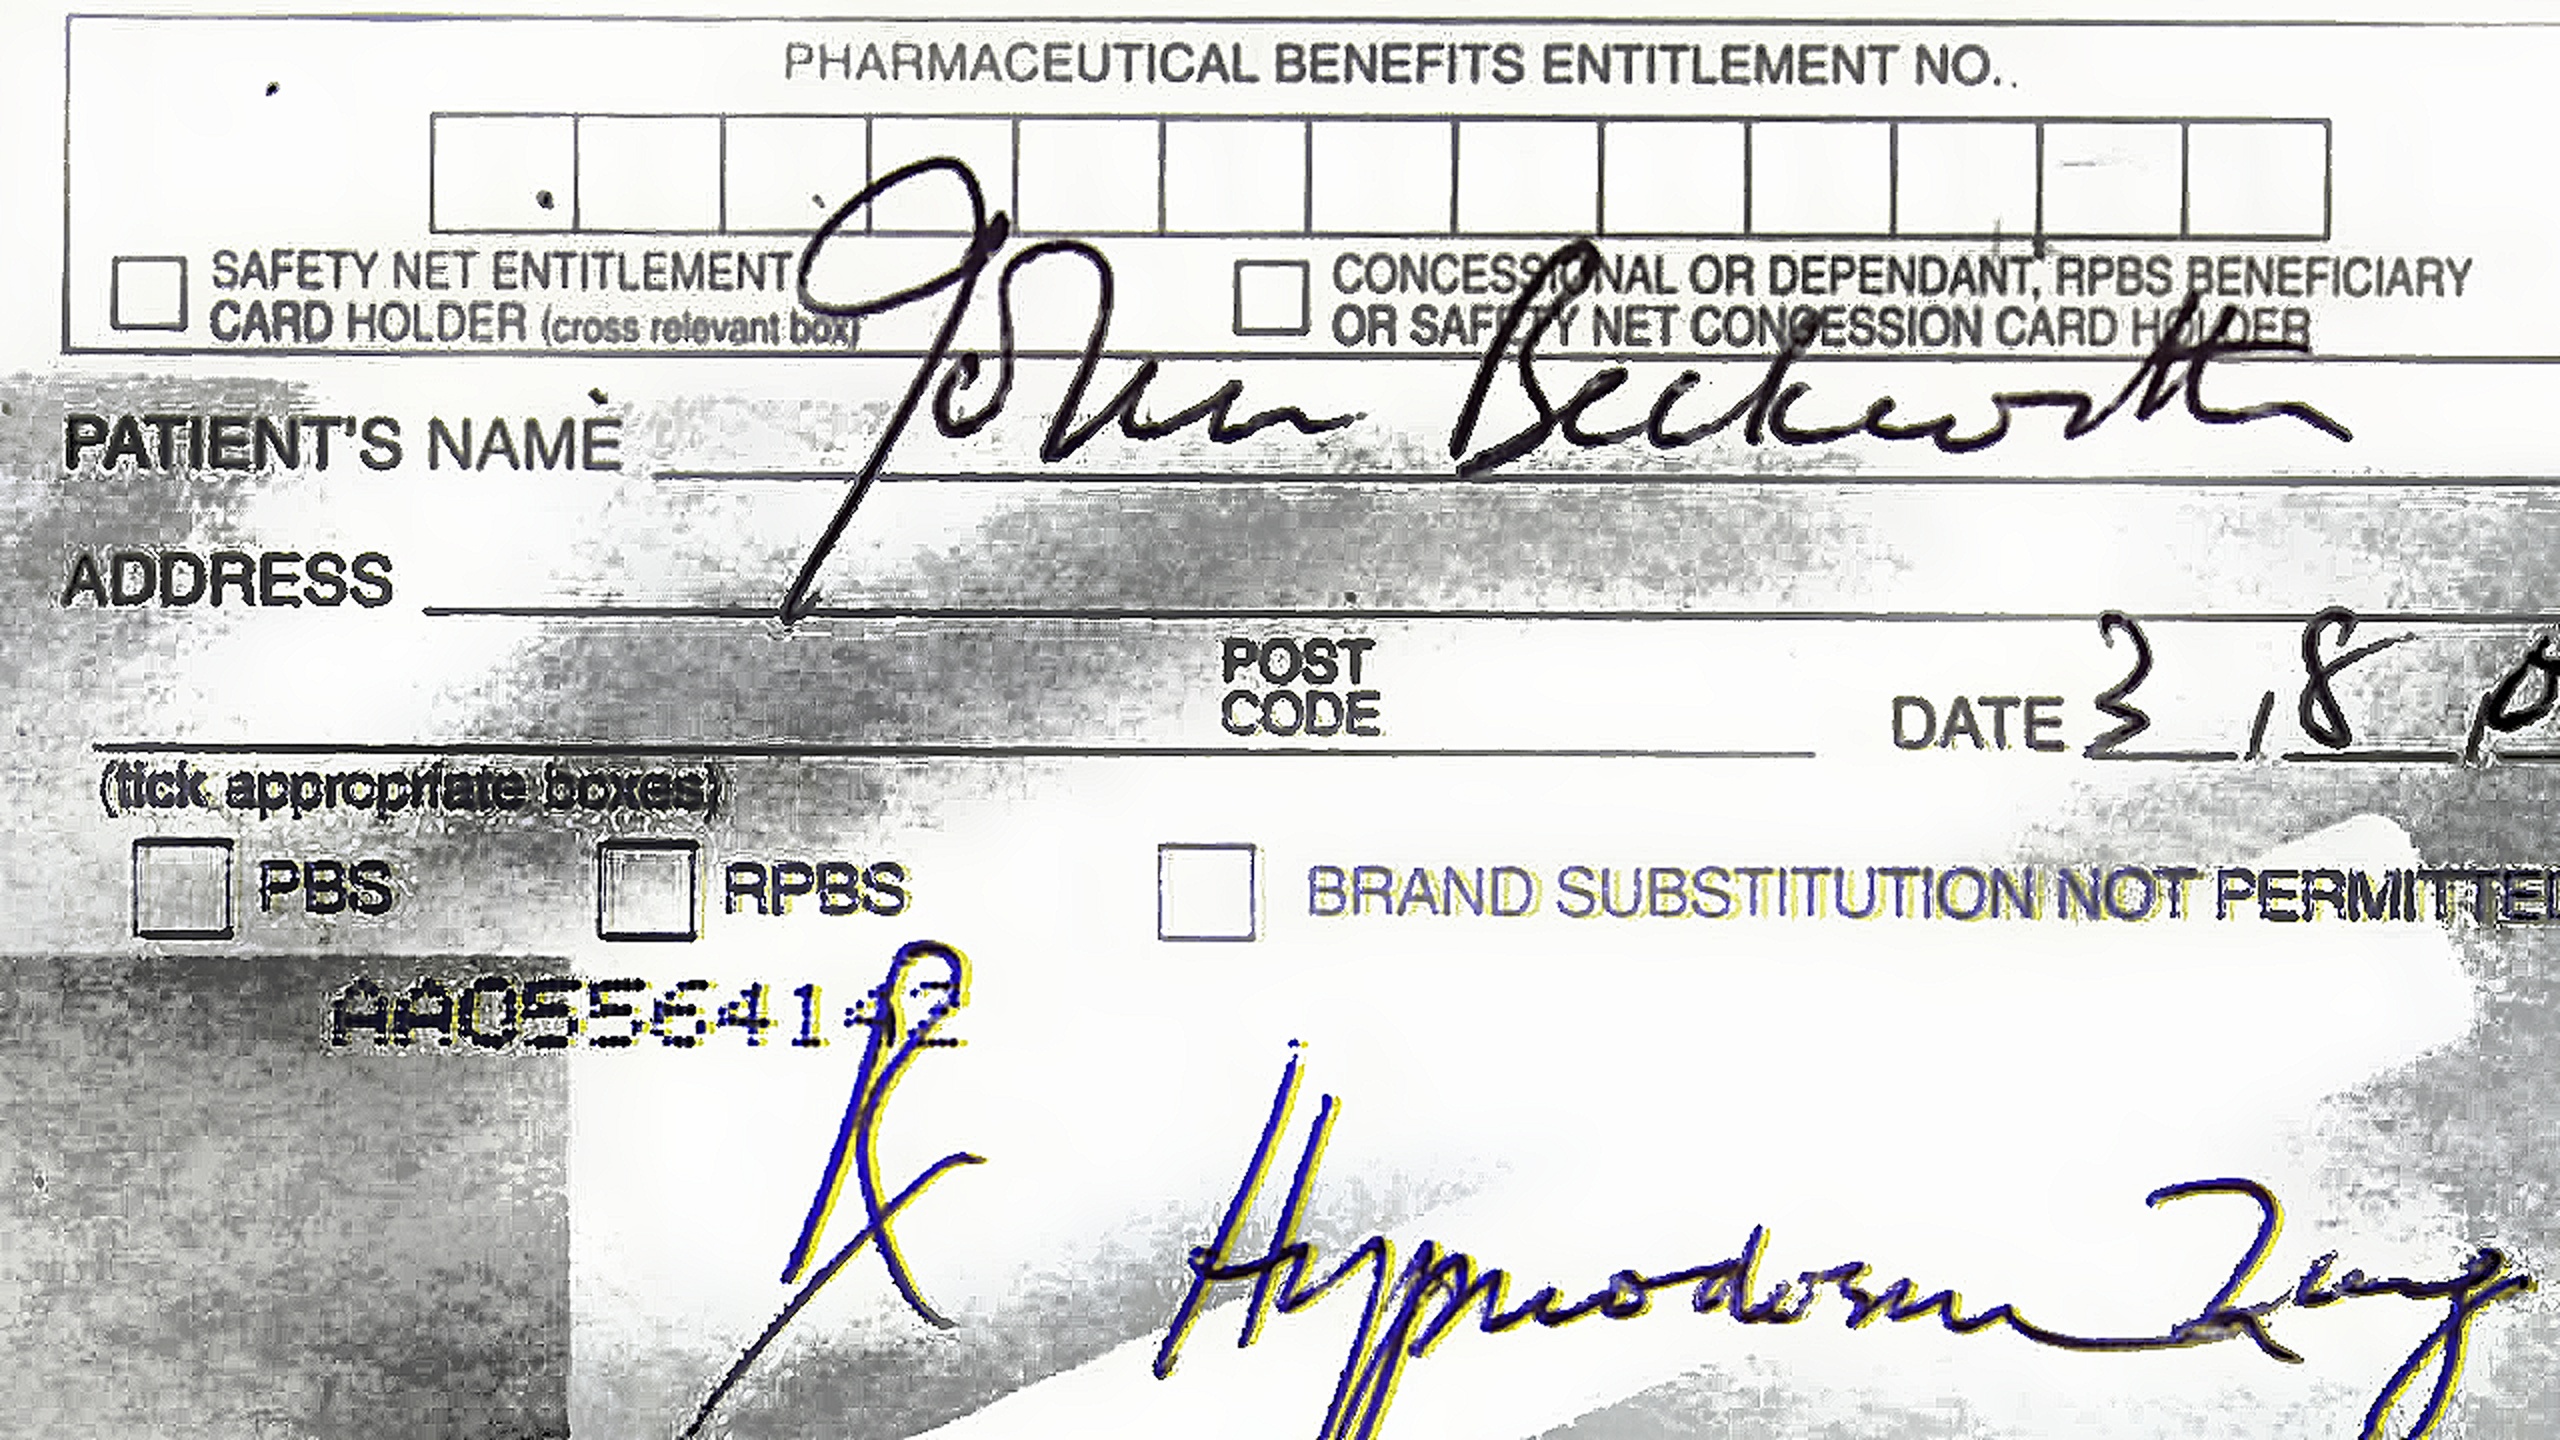 PHARMACEUTICAL BENEFITS ENTITLEMENT NO..
SAFETY NET ENTITLEMENT
CARD HOLDER (cross relevant box)
CONCESSIONAL OR DEPENDANT, RPBS BENEFICIARY
OR SAFETY NET CONCESSION CARD HOLDER
PATIENT'S NAME John Beckworth
ADDRESS
POST
CODE
DATE 3/8/0
(tick appropriate boxes)
PBS RPBS BRAND SUBSTITUTION NOT PERMITTED
AA05564142
Rx
Hypnodorm 2mg